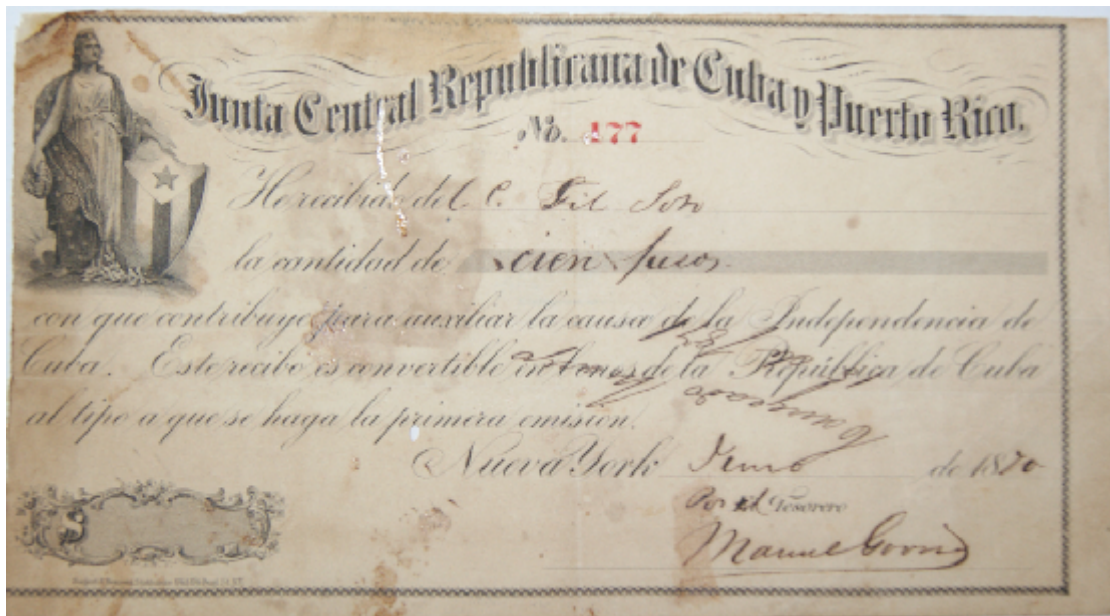 Junta Central Republicana de Cuba y Puerto Rico.
No. 177
He recibido del C. Gil Soto
la cantidad de cien pesos
con que contribuye para auxiliar la causa de la Independencia de
Cuba. Este recibo es convertible en bonos de la República de Cuba
al tipo a que se haga la primera emision.
Nueva York de 1870
Por el Tesorero
Manuel
$